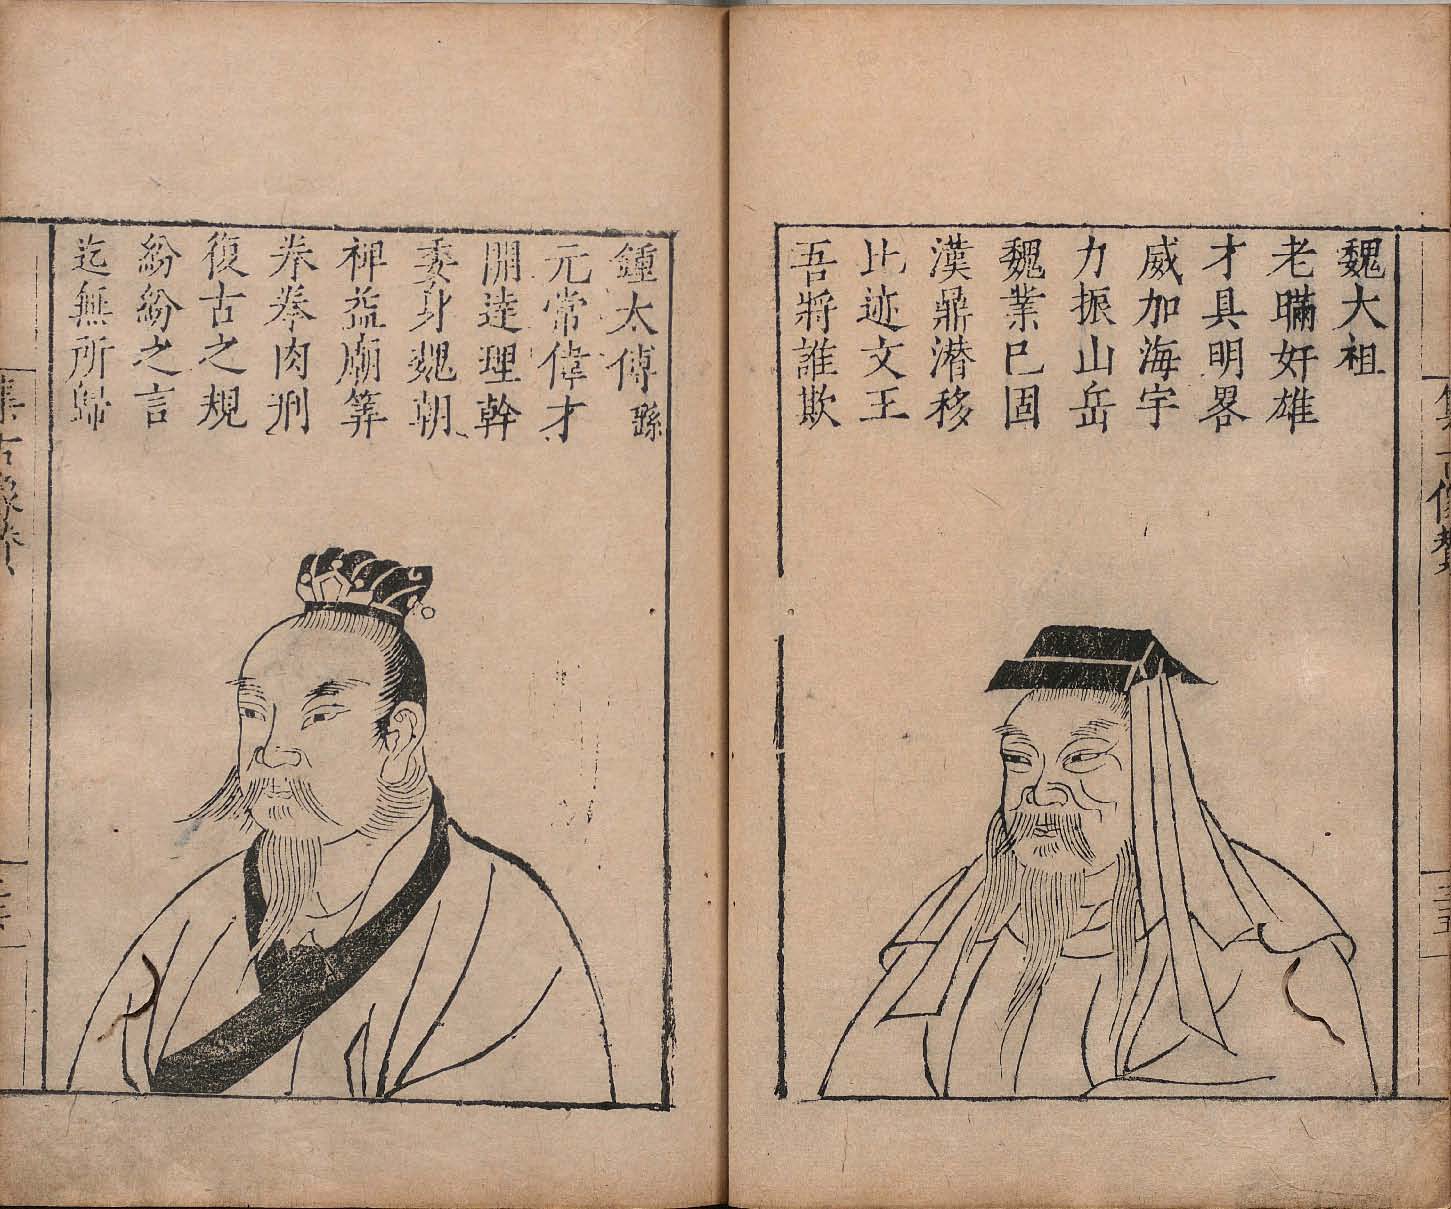 魏大祖
老瞞奸雄
才具明畧
威加海宇
力振山岳
魏業已固
漢鼎潜移
比迹文王
吾將誰欺
集古像贊
三五
鍾太傅 繇
元常偉才
開逹理幹
委身魏朝
裨益廟筭
拳拳肉刑
復古之規
紛紛之言
迄無所歸
集古像贊